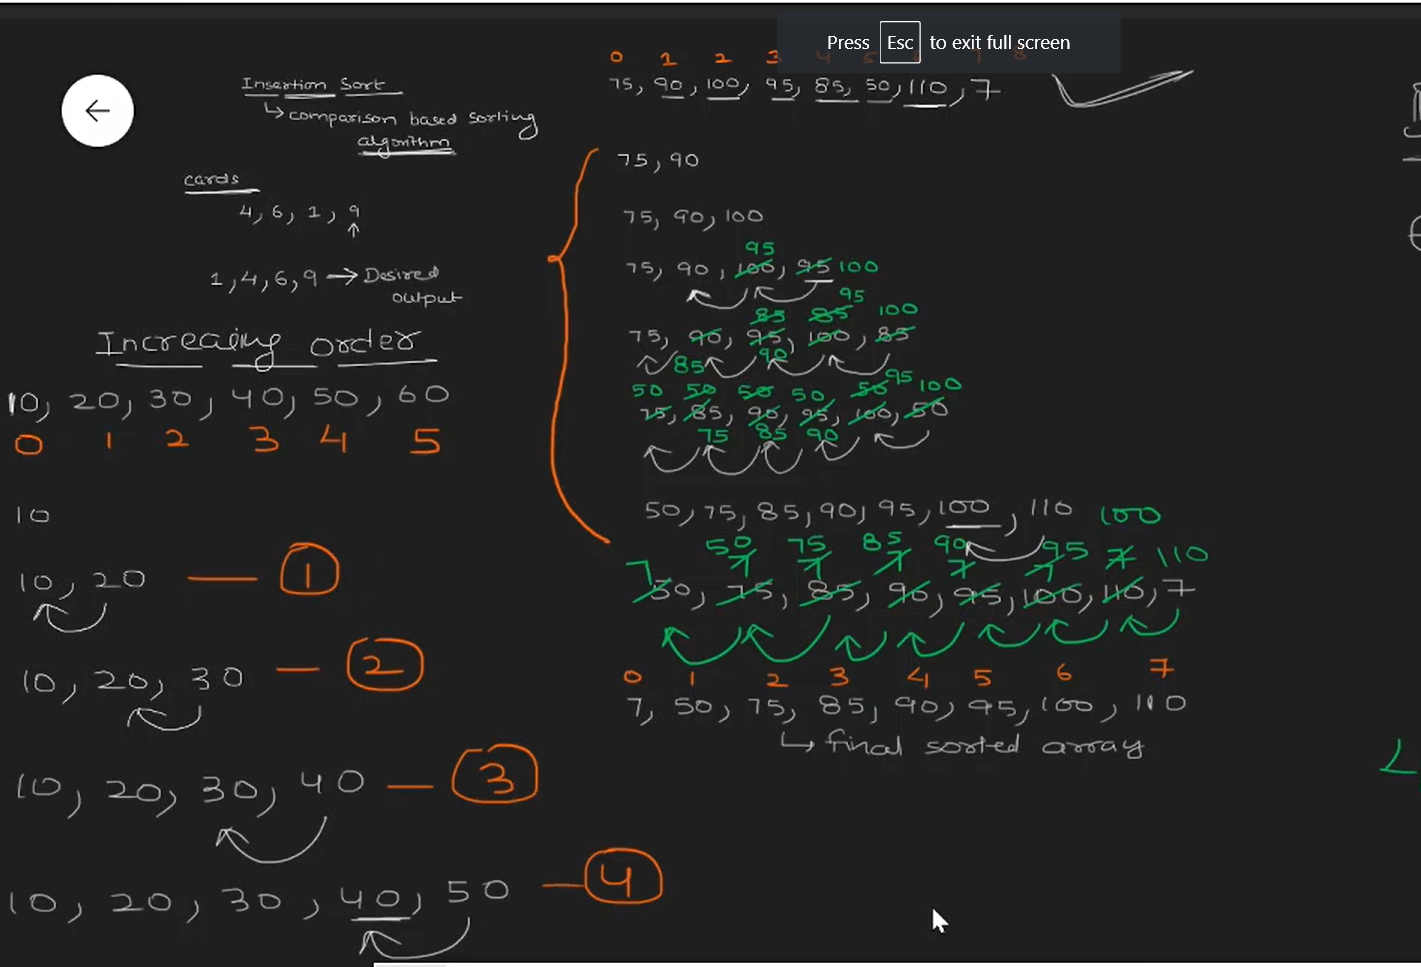 Press Esc to exit full screen
Insertion Sort
comparison based sorting
algorithm
cards
4, 6, 1, 9
1, 4, 6, 9 → Desired
output
Increasing order
10, 20, 30, 40, 50, 60
0 1 2 3 4 5
10
10, 20 — 1
10, 20, 30 — 2
10, 20, 30, 40 — 3
10, 20, 30, 40, 50 — 4
0 1 2 3
75, 90, 100, 95, 85, 50, 110, 7
75, 90
75, 90, 100
95
75, 90, 100, 95 100
95
85 85 100
75, 90, 95, 100, 85
85 90
50 50 50 50 50 95 100
75, 85, 90, 95, 100, 50
75 85 90
50, 75, 85, 90, 95, 100, 110 100
50 75 85 90 95 7 110
7 7 7 7 7 7
50, 75, 85, 90, 95, 100, 110, 7
0 1 2 3 4 5 6 7
7, 50, 75, 85, 90, 95, 100, 110
final sorted array